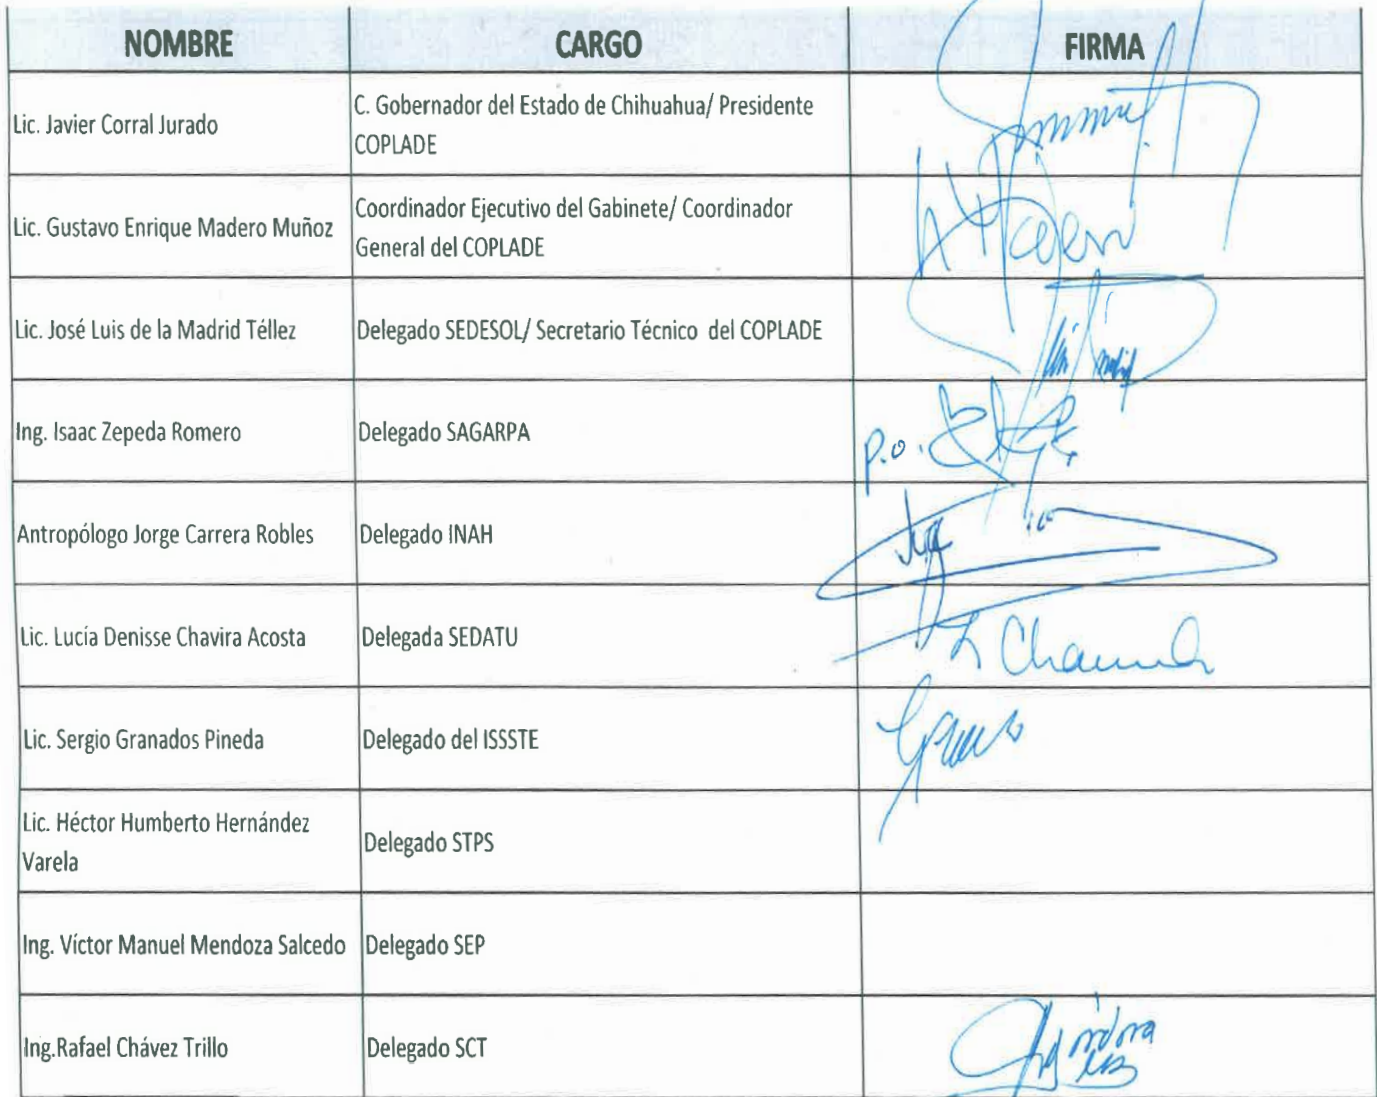 NOMBRE CARGO FIRMA
Lic. Javier Corral Jurado
C. Gobernador del Estado de Chihuahua/ Presidente
COPLADE
Lic. Gustavo Enrique Madero Muñoz
Coordinador Ejecutivo del Gabinete/ Coordinador
General del COPLADE
Lic. José Luis de la Madrid Téllez
Delegado SEDESOL/ Secretario Técnico del COPLADE
Ing. Isaac Zepeda Romero
Delegado SAGARPA
p.o.
Antropólogo Jorge Carrera Robles
Delegado INAH
Lic. Lucía Denisse Chavira Acosta
Delegada SEDATU
Lic. Sergio Granados Pineda
Delegado del ISSSTE
Lic. Héctor Humberto Hernández
Varela
Delegado STPS
Ing. Víctor Manuel Mendoza Salcedo
Delegado SEP
Ing.Rafael Chávez Trillo
Delegado SCT